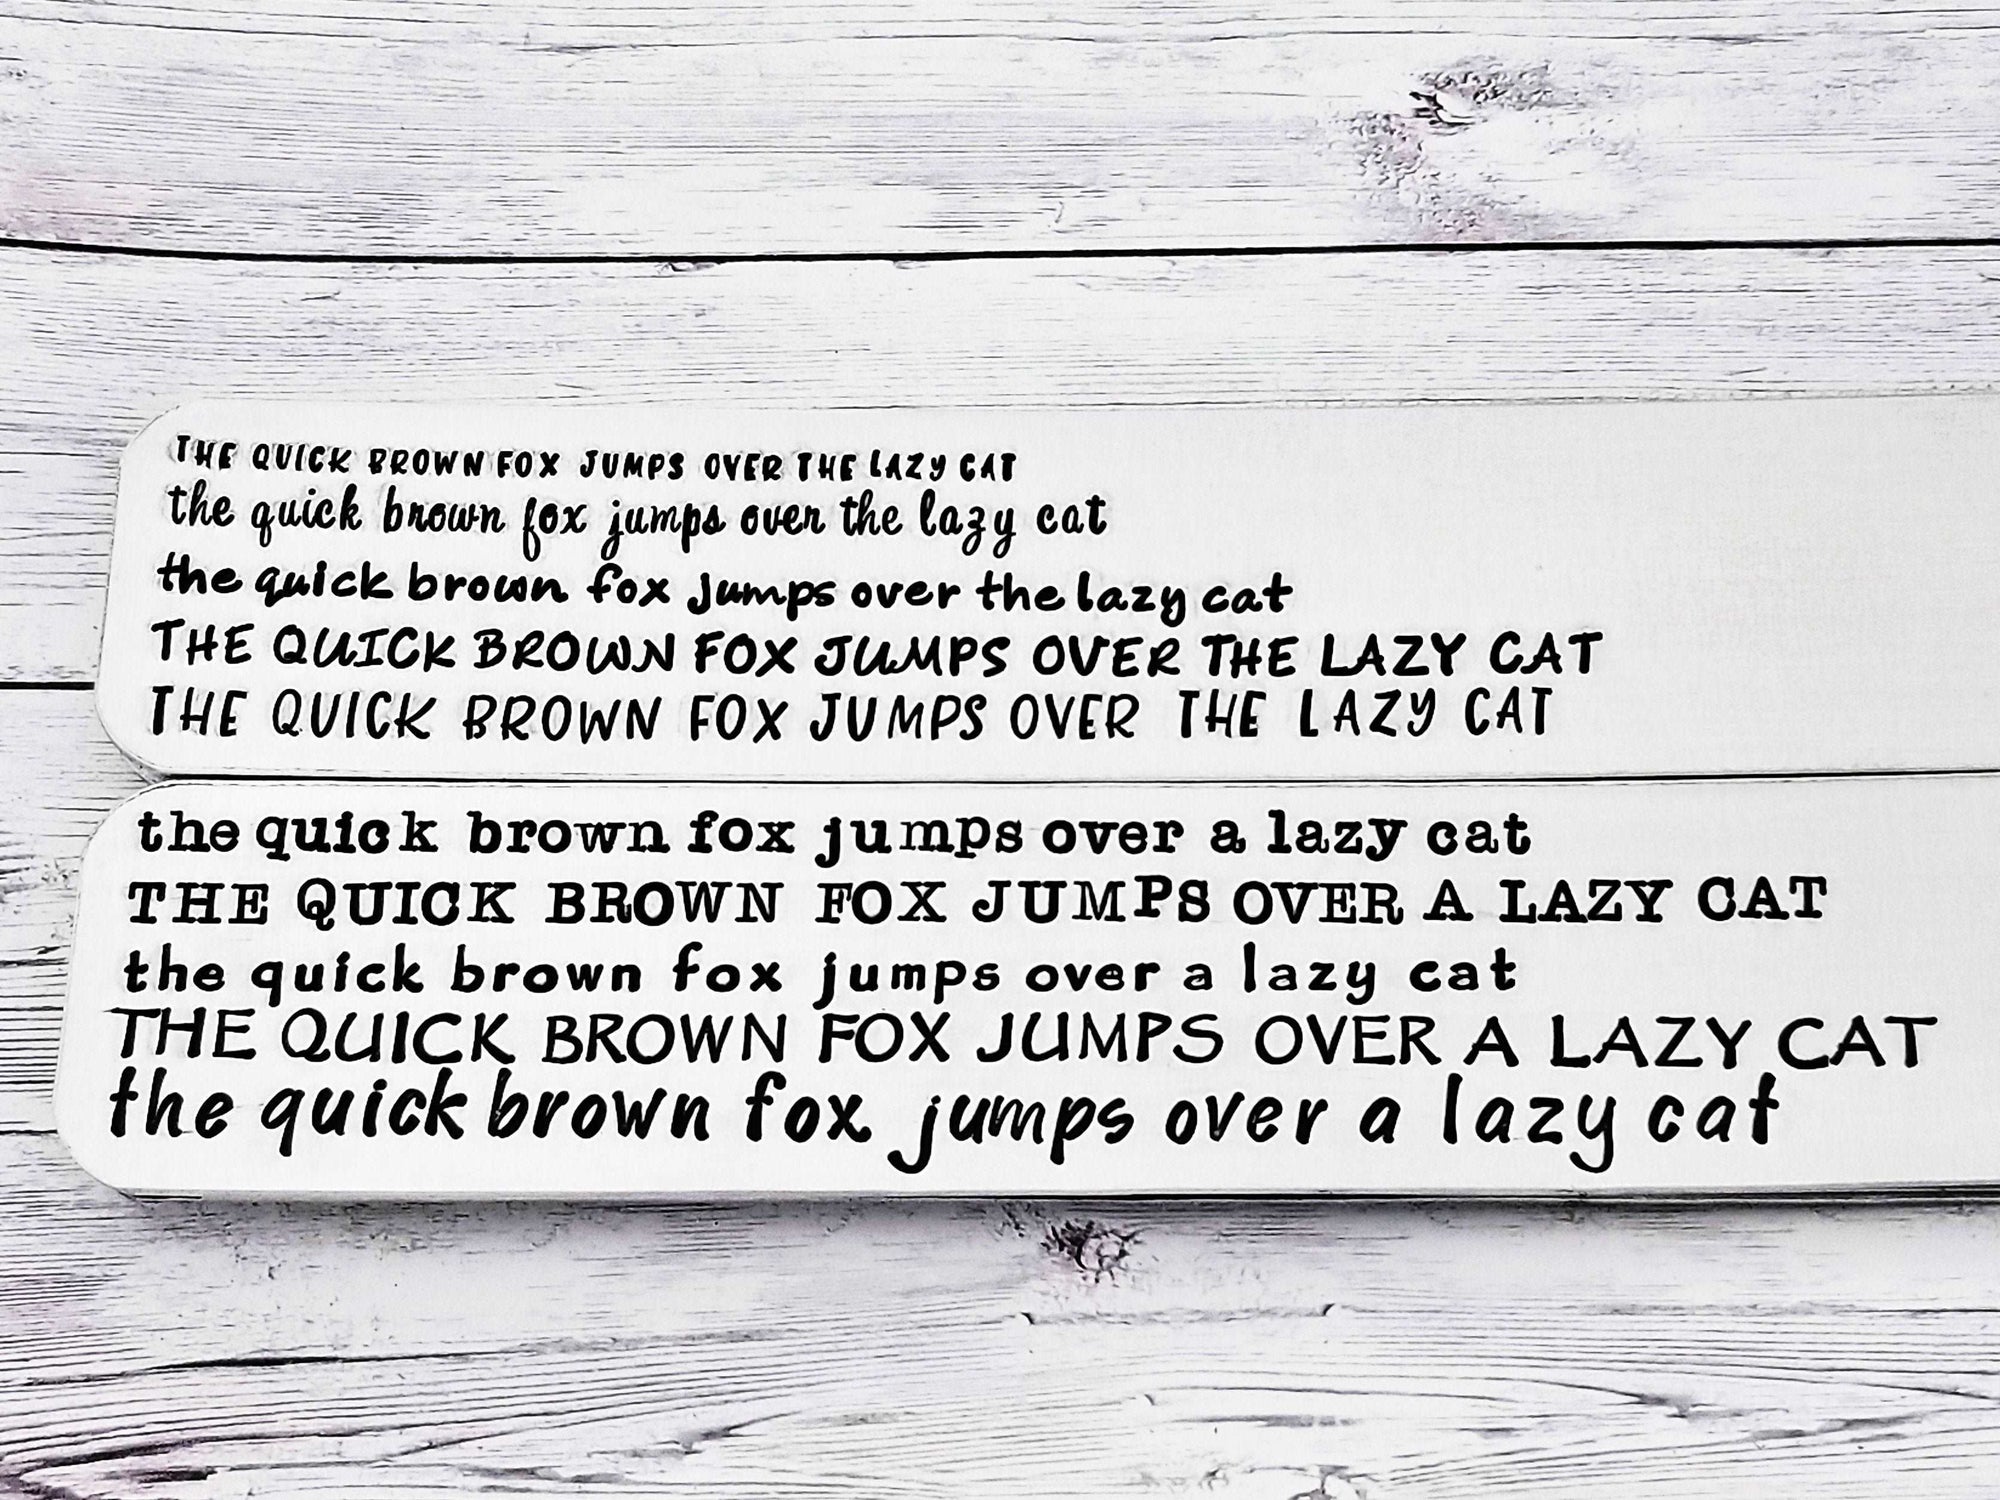 THE QUICK BROWN FOX JUMPS OVER THE LAZY CAT
the quick brown fox jumps over the lazy cat
the quick brown fox jumps over the lazy cat
THE QUICK BROWN FOX JUMPS OVER THE LAZY CAT
THE QUICK BROWN FOX JUMPS OVER THE LAZY CAT
the quick brown fox jumps over a lazy cat
THE QUICK BROWN FOX JUMPS OVER A LAZY CAT
the quick brown fox jumps over a lazy cat
THE QUICK BROWN FOX JUMPS OVER A LAZY CAT
the quick brown fox jumps over a lazy cat